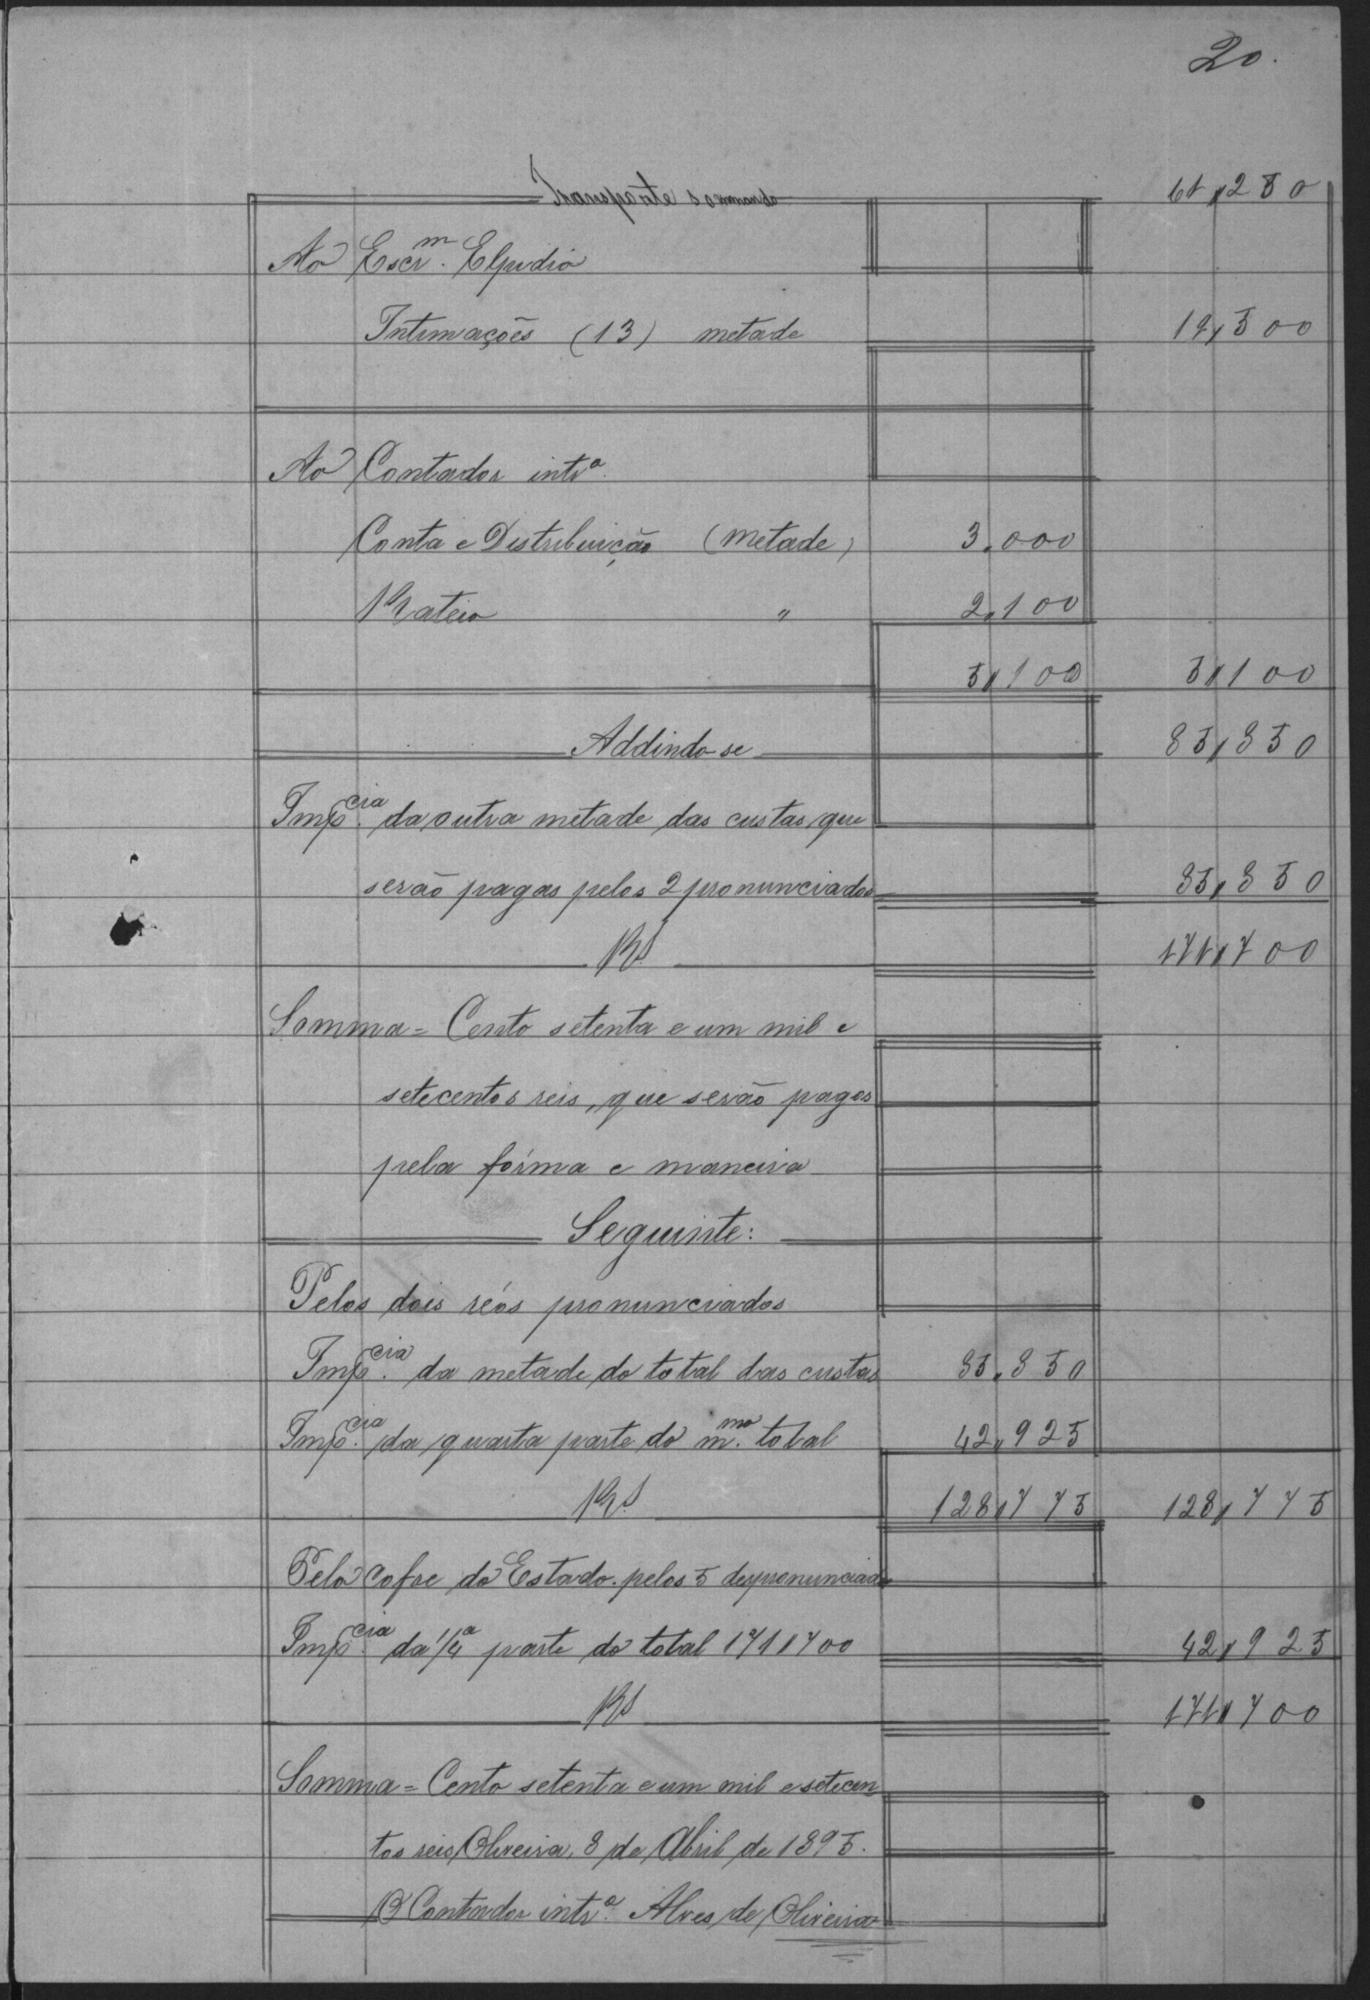 20.
Transporte sommando 61,250
Ao Escr.m Elpidio
Intimações (13) metade 19,500
Ao Contador intr.o
Conta e Distribuição (metade) 3.000
Rateio " 2,100
5,100 5,100
Addindo se 85,850
Imp.cia da outra metade das custas, que
serão pagas pelos 2 pronunciados 85,850
RS 171,700
Somma = Cento setenta e um mil e
setecentos reis, que serão pagos
pela fórma e maneira
Seguinte:
Pelos dois réos pronunciados
Imp.cia da metade do total das custas 85,850
Imp.cia da quarta parte do m.mo total 42,925
RS 128,775 128,775
Pelo cofre do Estado. pelos 5 despronunciados
Imp.cia da 1/4a parte do total 171,700 42,925
RS 171,700
Somma = Cento setenta e um mil e setecen
tos reis, Oliveira, 8 de Abril de 1895.
O Contador intr.o Alves de Oliveira